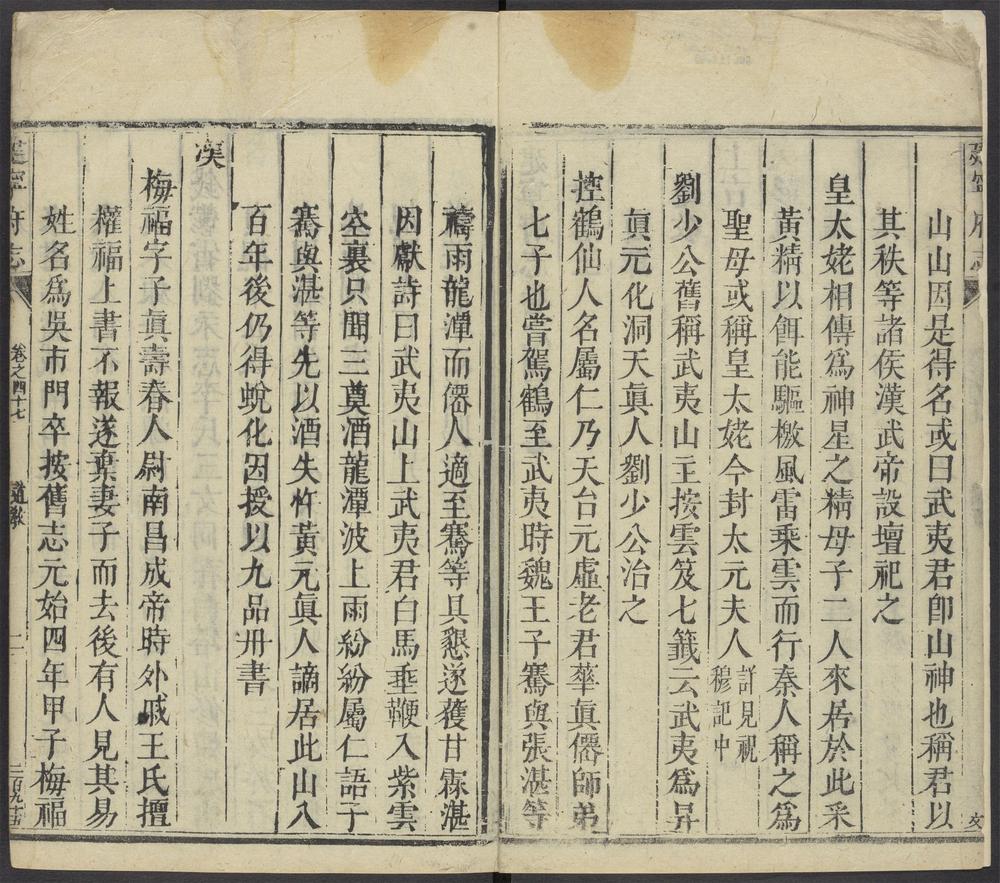 山山因是得名或曰武夷君卽山神也稱君以
其秩等諸侯漢武帝設壇祀之
皇太姥相傳爲神星之精母子二人來居於此采
黃精以餌能驅檄風雷乘雲而行秦人稱之爲
聖母或稱皇太姥今封太元夫人詳見祝
穆記中
劉少公舊稱武夷山主按雲笈七籤云武夷爲昇
眞元化洞天眞人劉少公治之
控鶴仙人名屬仁乃天台元虛老君華眞僊師弟
七子也嘗駕鶴至武夷時魏王子騫與張湛等
禱雨龍潭而僊人適至騫等具懇遂獲甘霖湛
因獻詩曰武夷山上武夷君白馬垂鞭入紫雲
空裏只聞三奠酒龍潭波上雨紛紛屬仁語子
騫與湛等先以酒失忤黃元眞人謫居此山入
百年後仍得蛻化因授以九品冊書
漢
梅福字子眞壽春人尉南昌成帝時外戚王氏擅
權福上書不報遂棄妻子而去後有人見其易
姓名爲吳市門卒按舊志元始四年甲子梅福
建寧府志
卷之四十七
道教
二